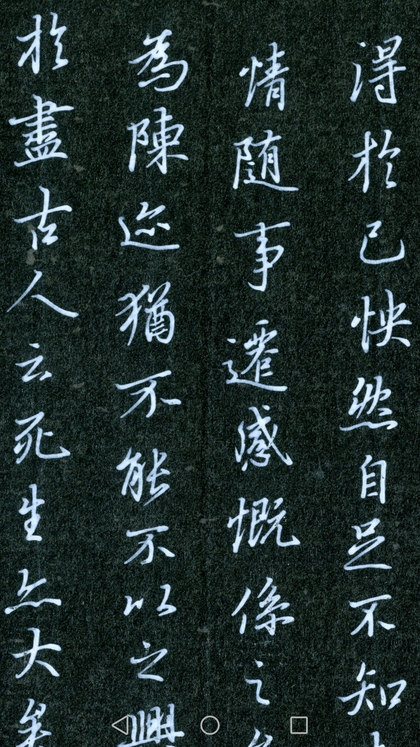 得於己怏然自足不知
情随事遷感慨係之
為陳迹猶不能不以之興
於盡古人云死生亦大矣